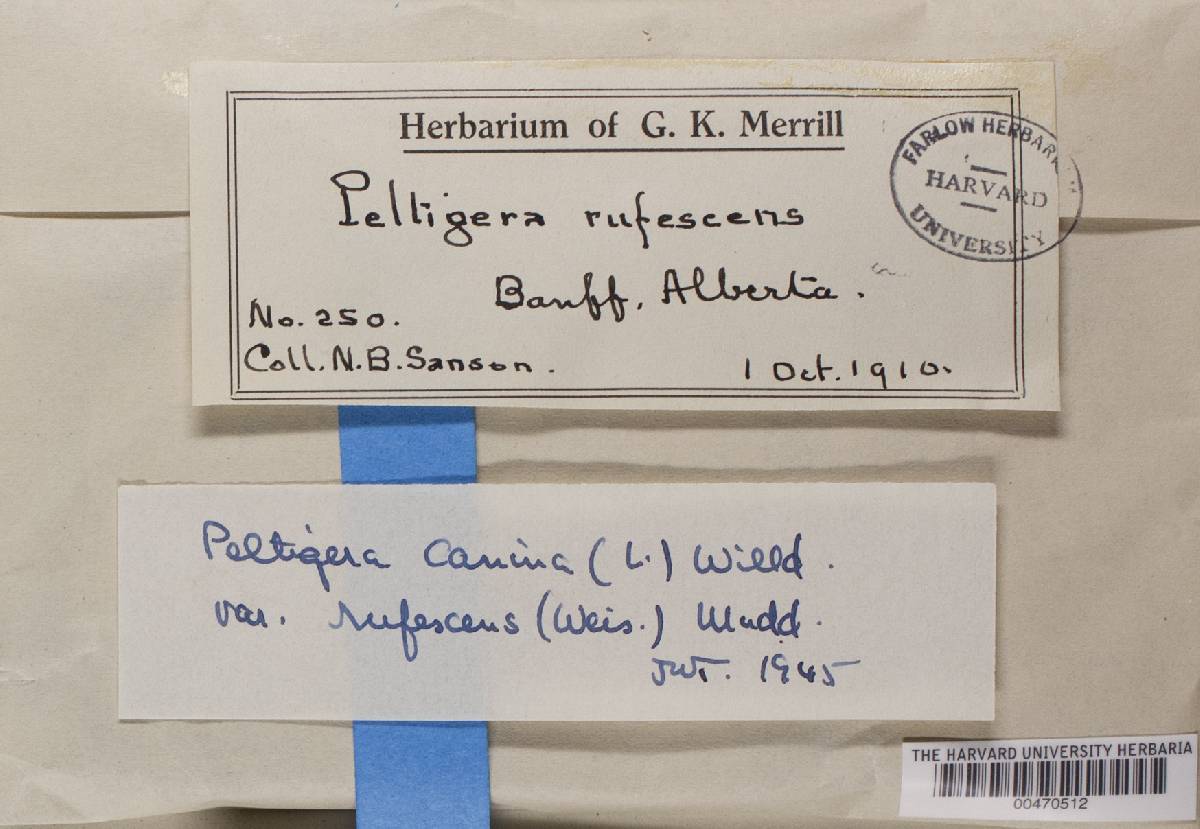 Herbarium of G. K. Merrill
FARLOW HERBAR
HARVARD
UNIVERSITY
Peltigera rufescens
Banff, Alberta.
No. 250.
Coll. N. B. Sanson.
1 Oct. 1910.
Peltigera canina (L.) Willd.
var. rufescens (Weis.) Mudd.
JWT. 1945
THE HARVARD UNIVERSITY HERBARIA
00470512